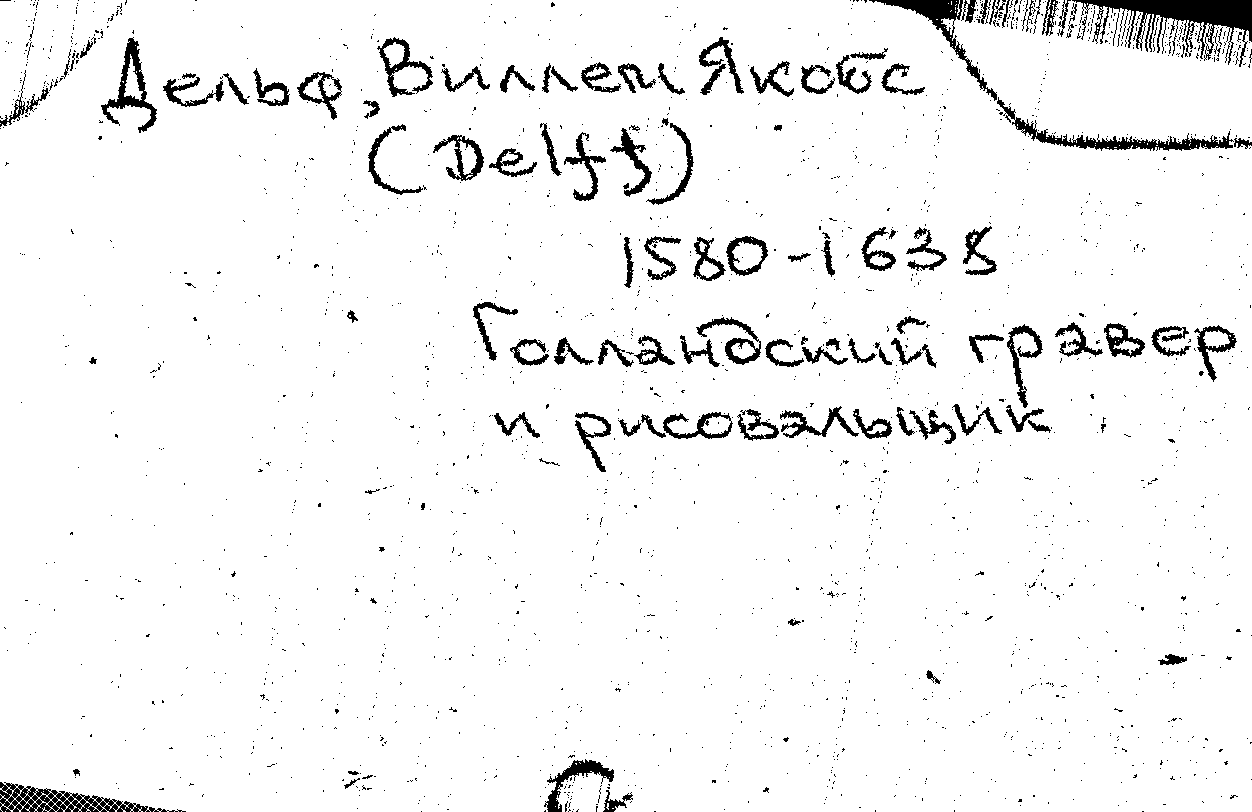 Дельф, Виллем Якобс
(Delff)
1580-1638
Голландский гравер
и рисовальщик